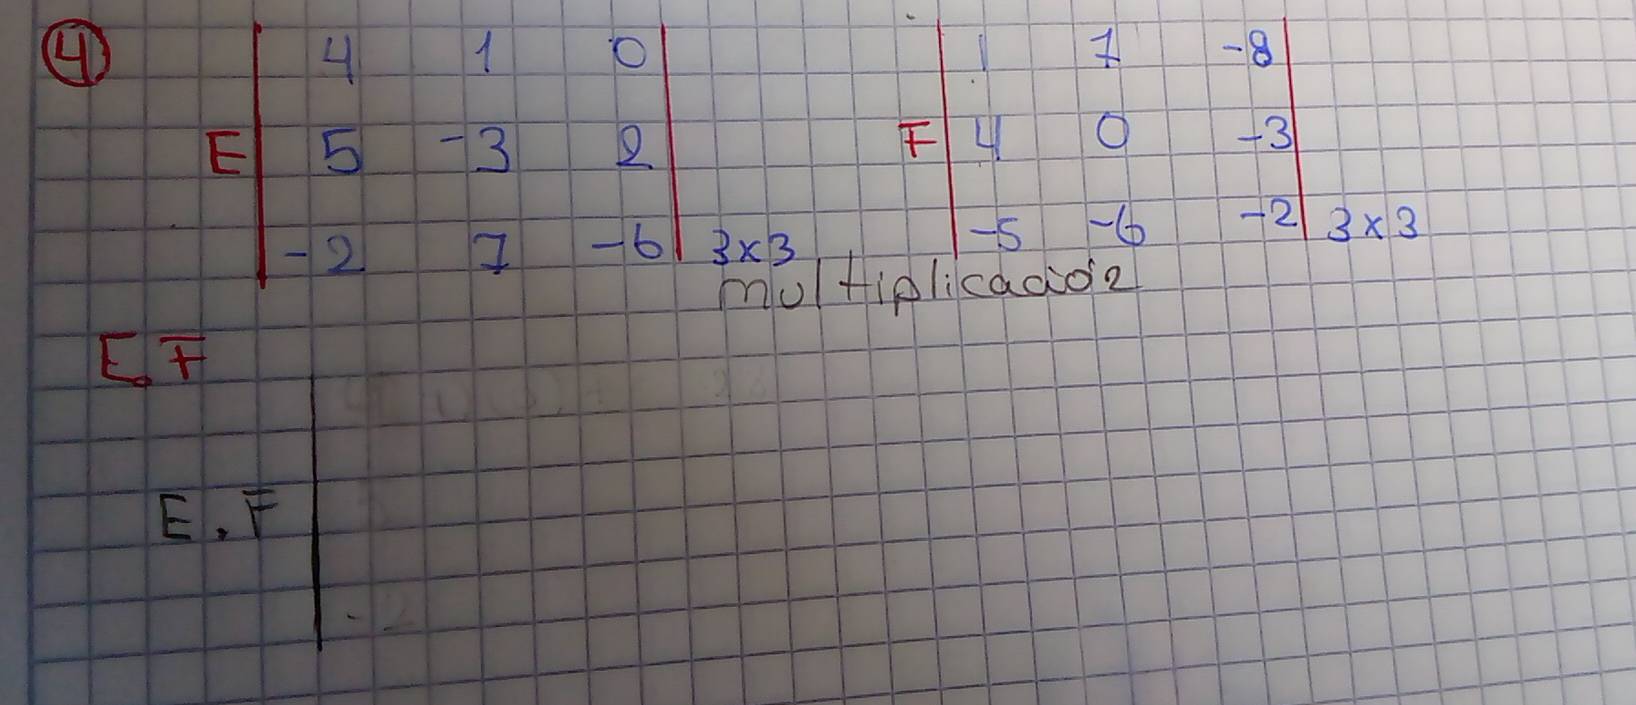 4
4 1 0
E 5 -3 2
-2 7 -6 3x3
1 7 -8
F 4 0 -3
-5 -6 -2 3x3
multiplicación
E.F
E.F